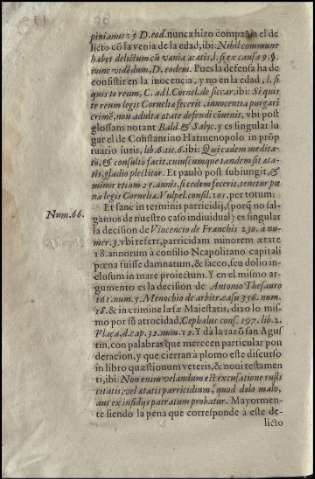 piniamur. 2. D. eod. nunca hizo compañ. el de
licto cõ la venia de la edad, ibi: Nihil commune
habet delictum cũ vania ætatis. l. si ex causa 9. §.
nunc vidēdum, D. eodem. Pues la defensa ha de
consistir en la inocencia, y no en la edad, l. si
quis te reum, C. ad l. Cornel. de sicar. ibi: Si quis
te reum legis Corneliæ fecerit, innocentia purgari
crimē, non adulta ætate defendi cōuenit, vbi post
glossans notant Bald. & Salyc. y es singular lu
gar el de Constantino Harmenopolo in prōp
tuario iuris, lib. 6. tit. 6. ibi: Qui cædem medita
tò, & consultò facit, cuiuscumque tandem sit æta
tis, gladio plectitor. Et paulò post subiungit, &
minor etiam 25. annis, si cædem fecerit, tenetur pœ
na legis Corneliæ. Vulpel. consil. 101. per totum.
Et sanè in terminis parricidij, (porq̃ no sal
Num. 66.
gamos de nuestro caso indiuidual) es singular
la decision de Vincencio de Franchis 230. a nu
mer. 3. vbi refert, parricidam minorem ætate
18. annorum à consilio Neapolitano capitali
pœna fuisse damnatum, & sacco, seu dolio in-
clusum in mare proiectum. Y en el mismo ar-
gumento es la decision de Antonio Thesauro
161. num. 5. Menochio de arbitr. casu 356. num.
18. & in crimine læsæ Maiestatis, dixo lo mis
mo por sũ atrocidad, Cephalus cons. 197. lib. 2.
Plaça d. cap. 32. num. 12. Y dà la razõ san Agus
tin, con palabras que merecen particular pon
deracion, y que cierran a plomo este discurso
in libro quæstionum veteris, & noui testamen
ti, ibi: Non enim velandum est excusatione rusti
citatis, vel ætatis parricidium, quod dolo malo,
aut ex insidijs patratum probatur. Mayormen-
te siendo la pena que corresponde à este de-
licto